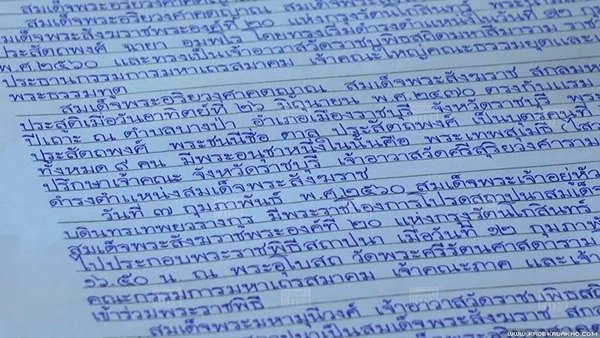 สมเด็จพระอริยวงศาคตญาณ สมเด็จพระสังฆราช
สมเด็จพระสังฆราชพระองค์ที่ ๒๐ แห่งกรุงรัตนโกสินทร์
ประสัตถพงศ์ ฉายา อมฺพโร โดยทรงเริ่มดำรงตำแหน่งในวันที่ ๑๒
พ.ศ.๒๕๖๐ และทรงเป็นเจ้าอาวาสวัดราชบพิธสถิตมหาสีมาราม
ประธานกรรมการมหาเถรสมาคม เจ้าคณะใหญ่คณะธรรมยุตและ
พระธรรมทูต
สมเด็จพระอริยวงศาคตญาณ สมเด็จพระสังฆราช สกลมหา
ประสูติเมื่อวันอาทิตย์ที่ ๒๖ มิถุนายน พ.ศ.๒๔๗๐ ตรงกับแรม
ปีเถาะ ณ ตำบลบางป่า อำเภอเมืองราชบุรี จังหวัดราชบุรี
ประสัตถพงศ์ พระชนนีชื่อ ตาล ประสัตถพงศ์ เป็นบุตรคนโต
ทั้งหมด ๙ คน มีพระอนุชาหนึ่งในนั้นคือ พระเทพสุเมธี
ปรึกษาเจ้าคณะ จังหวัดราชบุรี เจ้าอาวาสวัดศรีสุริยวงศาราม
ดำรงตำแหน่งสมเด็จพระสังฆราช
วันที่ ๗ กุมภาพันธ์ พ.ศ.๒๕๖๐ สมเด็จพระเจ้าอยู่หัว
บดินทรเทพยวรางกูร มีพระราชโองการโปรดสถาปนาสมเด็จ
สมเด็จพระสังฆราชพระองค์ที่ ๒๐ แห่งกรุงรัตนโกสินทร์
ไปประกอบพระราชพิธีสถาปนา เมื่อวันที่ ๑๒ กุมภา
๑๖.๕๐ น. ณ พระอุโบสถ วัดพระศรีรัตนศาสดาราม
คณะกรรมการมหาเถรสมาคม เจ้าคณะภาค และเจ้า
เข้าร่วมพระราชพิธี
สมเด็จพระมหามุนีวงศ์ เจ้าอาวาสวัดราชบพิธสถิต
เป็นสมเด็จพระสังฆราช
WWW.KAOSKAWKAO.COM